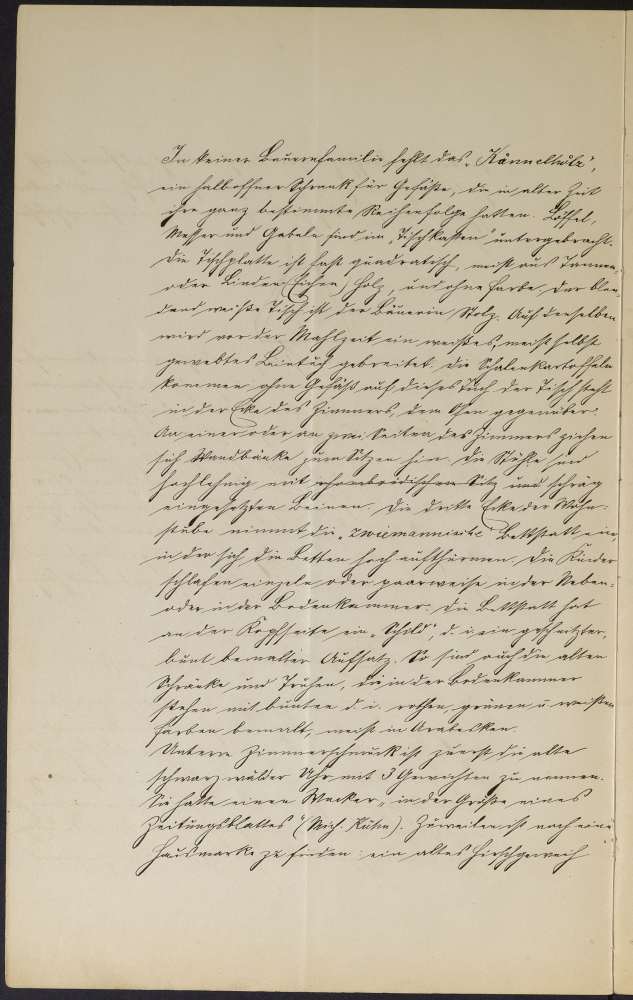 In keiner Bauernfamilie fehlt das „Kännelholz",
ein halboffner Schrank für Gefäße, die in alter Zeit
ihre ganz bestimmte Reihenfolge hatten. Löffel,
Messer und Gabeln sind im „Tischkasten" untergebracht.
Die Tischplatte ist fast quadratisch, meist aus Tannen-
oder Linden (Eichen) Holz, und ohne Farbe, der blen-
dend weiße Tisch ist der Bäuerin Stolz. Auf denselben
wird vor der Mahlzeit ein weißes, meist selbst
gewebtes Leintuch gebreitet. Die Schalenkartoffeln
kommen ohne Gefäß auf dieses Tuch. Der Tisch steht
in der Ecke des Zimmers, dem Ofen gegenüber.
An einer oder an zwei Seiten des Zimmers ziehen
sich Wandbänke zum Sitzen hin. Die Stühle sind
hochlehnig mit Sitz und schräg
eingesetzten Beinen. Die dritte Ecke der Wohn-
stube nimmt die „zwiemannische" Bettstatt ein
in der sich die Betten hoch aufthürmen. Die Kinder
schlafen einzeln oder paarweise in der Neben-
oder in der Bodenkammer. Die Bettstatt hat
an der Kopfseite ein „Schild", d. i. ein geschnitzter,
bunt bemalter Aufsatz. So sind auch die alten
Schränke und Truhen, die in der Bodenkammer
stehen mit bunten d. i. rothen, grünen u. weißen
Farben bemalt, meist in Arabesken.
Unterm Zimmerschmuck ist zuerst die alte
schwarzwälder Uhr mit 3 Gewichten zu nennen.
Sie hatte einen Wecker, „in der Größe eines
Zeitungsblattes" (Mich. Kuhn). Zuweilen ist noch eine
Hausmarke zu finden: ein altes Hirschgeweih